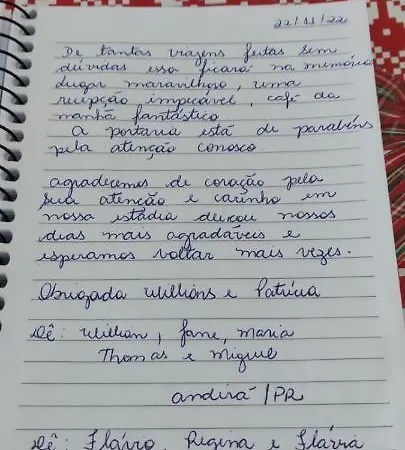 22/11/22
De tantas viagens feitas sem
dúvidas essa ficará na memória
Lugar maravilhoso, uma
recepção impecável, café da
manhã fantástico
A portaria está de parabéns
pela atenção conosco
Agradecemos de coração pela
sua atenção e carinho em
nossa estádia deixou nossos
dias mais agradáveis e
esperamos voltar mais vezes.
Obrigada Willians e Patrícia
Dê: Willian, Jane, Maria
Thomas e Miguel
Andirá / PR
Dê: Flávio, Regina e Flávia